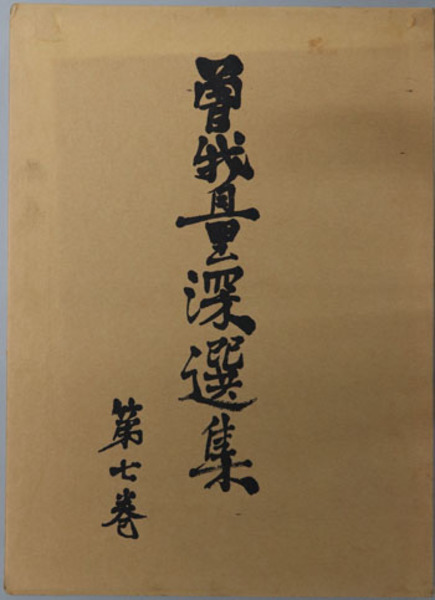 曽我量深選集
第七巻